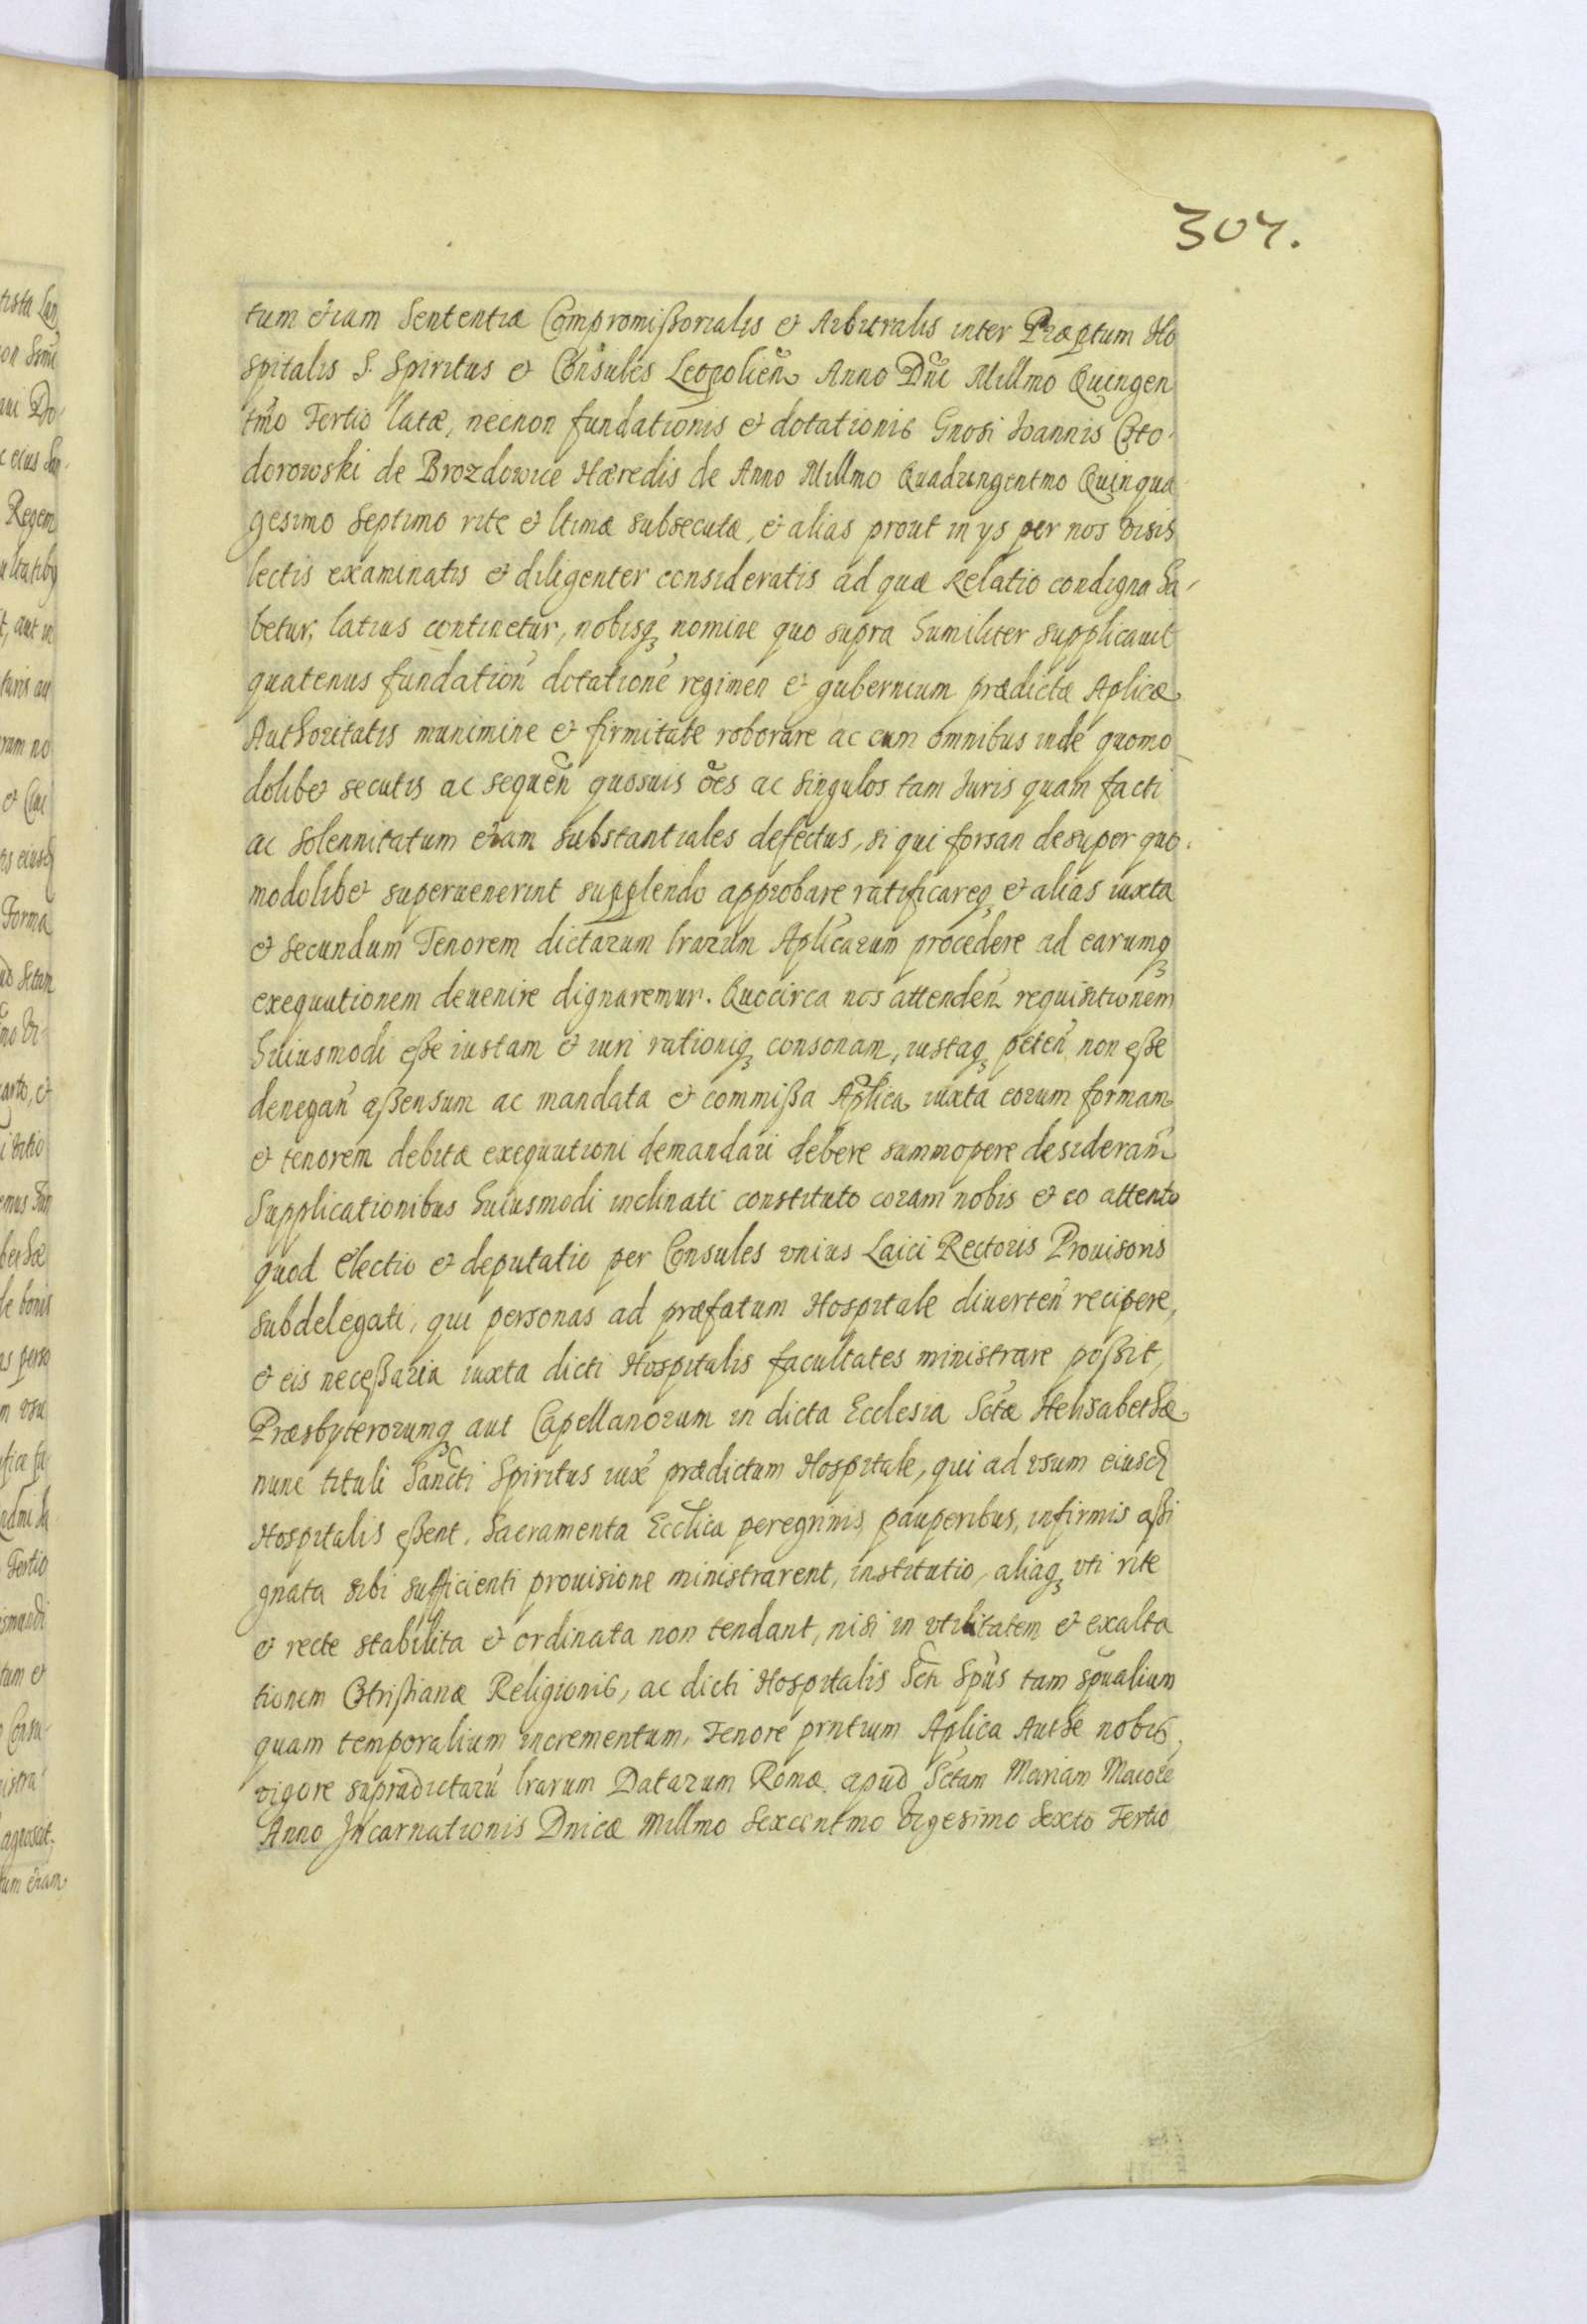 307.
tum etiam Sententiæ Compromißorialis et Arbitralis inter Præptum Ho
spitalis S. Spiritus et Consules Leopolien Anno Dni Millmo Quingen
tmo Tertio latæ, necnon fundationis et dotationis Gnosi Ioannis Cho-
dorowski de Brozdowice Hæredis de Anno Millmo Quadringentmo Quinqua
gesimo Septimo rite et ltimæ subsecutæ, et alias prout in ys per nos visis
lectis examinatis et diligenter consideratis ad quæ Relatio condigna ha-
betur, latius continetur, nobisq nomine quo supra humiliter supplicauit
quatenus fundation dotatione regimen et gubernium prædictæ Aplicæ
Authoritatis munimine et firmitate roborare ac cum omnibus inde quomo
dolibet secutis ac sequen quosuis oes ac Singulos tam Iuris quam facti
ac Solennitatum etiam substantiales defectus, si qui forsan desuper quo-
modolibet superuenerint supplendo approbare ratificareq et alias iuxta
et secundum Tenorem dictarum lrarum Aplicarum procedere ad earumq
exequutionem deuenire dignaremur. Quocirca nos attenden requisitionem
huiusmodi eße iustam et iuri rationiq consonam, iustaq peten non eße
denegan aßensum ac mandata et commißa Aplica iuxta eorum formam
et tenorem debitæ exequutioni demandari debere summopere desideran
Supplicationibus huiusmodi inclinati constituto coram nobis et eo attento
quod electio et deputatio per Consules vnius Laici Rectoris Prouisoris
subdelegati, qui personas ad præfatum Hospitale diuerten recipere,
et eis neceßaria iuxta dicti Hospitalis facultates ministrare poßit,
Præsbyterorumq aut Capellanorum in dicta Ecclesia Sctæ Helisabethæ
nunc tituli Sancti Spiritus iuxe prædictum Hospitale, qui ad vsum eiusd
Hospitalis eßent, Sacramenta Ecclica peregrinis pauperibus, infirmis aßi
gnata sibi sufficienti prouisione ministrarent, institutio, aliaq vti rite
et recte stabilita et ordinata non tendant, nisi in vtilitatem et exalta
tionem Christianæ Religionis, ac dicti Hospitalis Scti Spus tam spualium
quam temporalium incrementum, Tenore prntium Aplica Authe nobis,
vigore supradictaru lrarum Datarum Romæ apud Sctam Mariam Maiore
Anno Incarnationis Dnicæ Millmo Sexcentmo Vigesimo Sexto Tertio